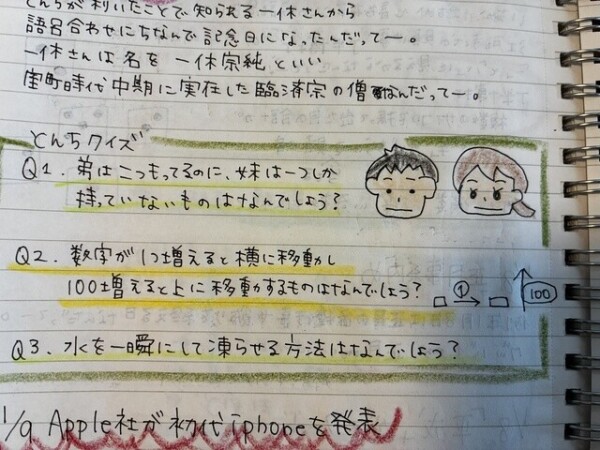 とんちが利いたことで知られる一休さんから
語呂合わせにちなんで記念日になったんだってー。
一休さんは名を 一休宗純といい
室町時代中期に実在した臨済宗の僧なんだってー。
とんちクイズ
Q1. 弟は二つもってるのに、妹は一つしか
持っていないものはなんでしょう?
Q2. 数字が1つ増えると横に移動し
100増えると上に移動するものはなんでしょう?
① 100
Q3. 水を一瞬にして凍らせる方法はなんでしょう?
1/9 Apple社が初代iphoneを発表